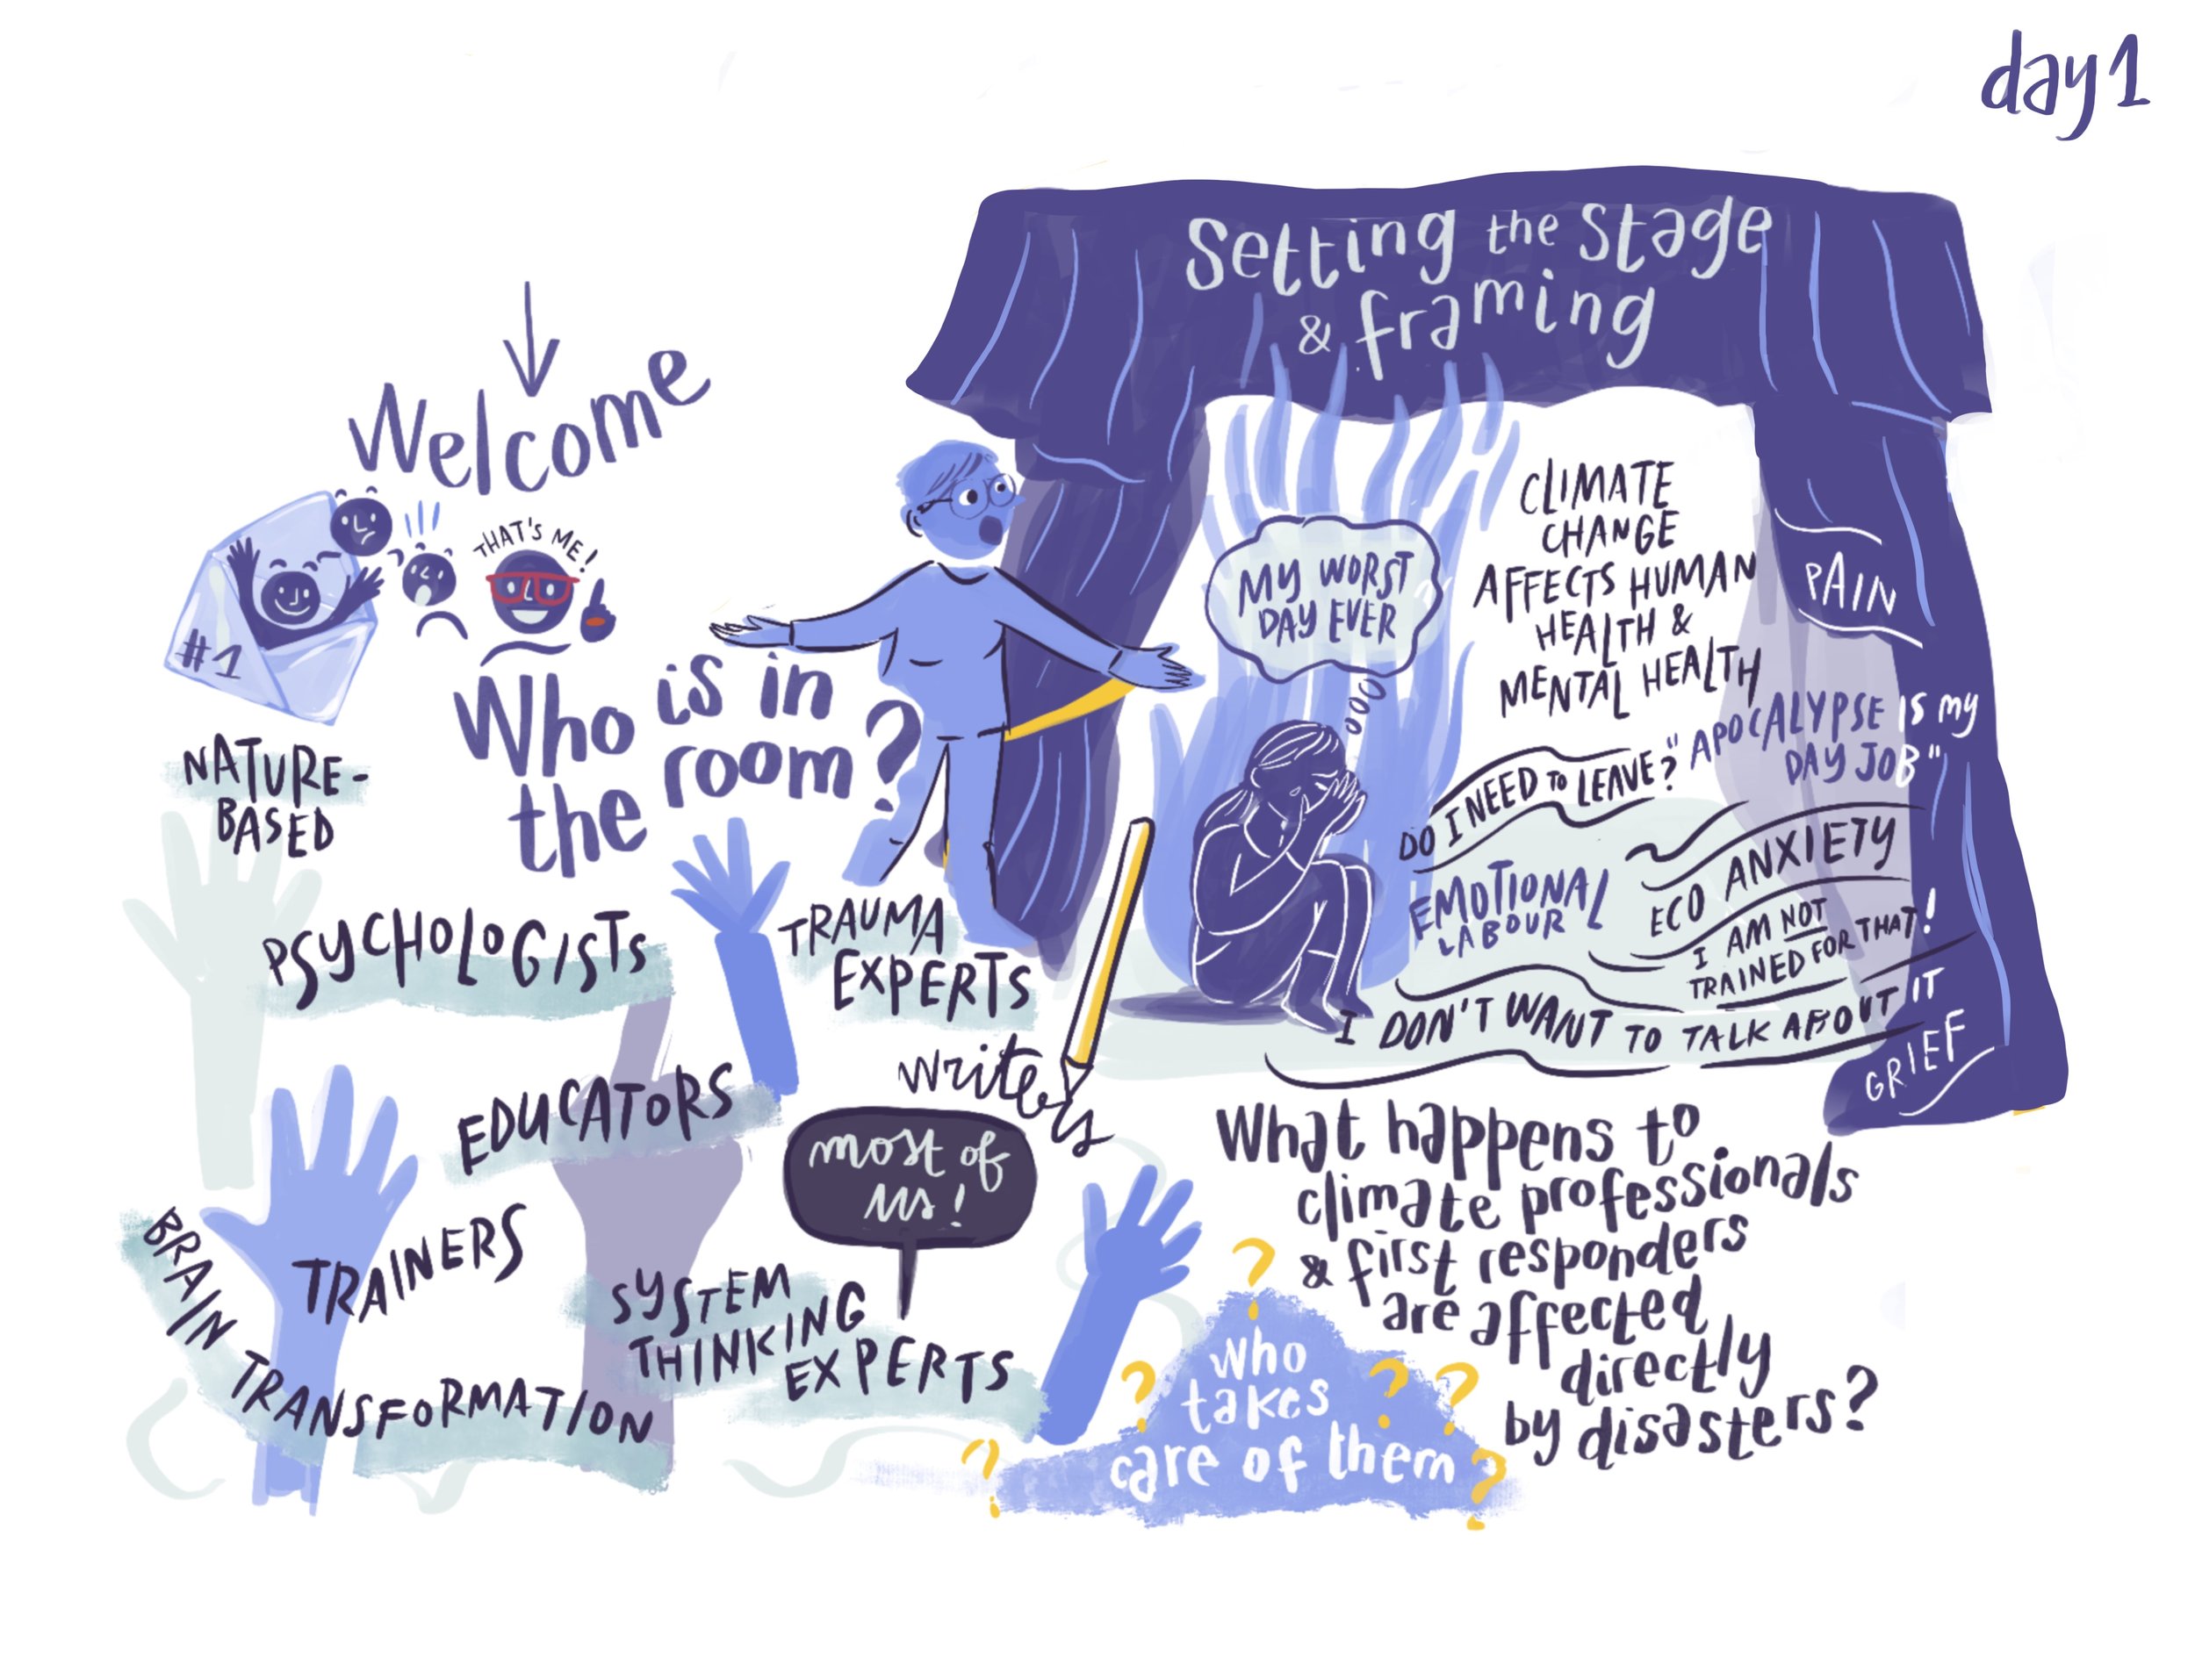 day 1
Welcome
THAT'S ME!
#1
Who is in
the room?
NATURE-
BASED
PSYCHOLOGISTS
TRAUMA
EXPERTS
writers
EDUCATORS
most of
us!
TRAINERS
BRAIN TRANSFORMATION
SYSTEM
THINKING
EXPERTS
Setting the Stage
& framing
MY WORST
DAY EVER
CLIMATE
CHANGE
AFFECTS HUMAN
HEALTH &
MENTAL HEALTH
PAIN
"APOCALYPSE IS my
DAY JOB"
DO I NEED TO LEAVE?
EMOTIONAL
LABOUR
ECO ANXIETY
I AM NOT
TRAINED FOR THAT!
I DON'T WANT TO TALK ABOUT IT
GRIEF
What happens to
climate professionals
& first responders
are affected
directly
by disasters?
?
who
? takes ? ?
? care of them ?